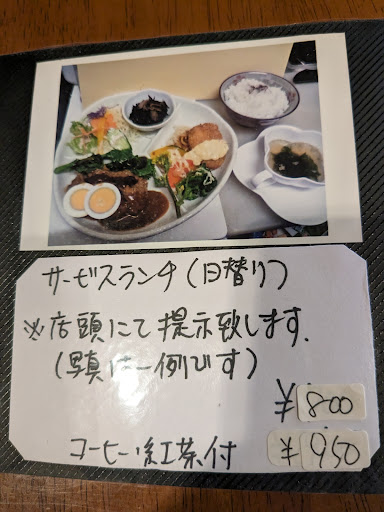 サービスランチ(日替り)
※店頭にて提示致します.
(写真は一例です)
¥800
コーヒー・紅茶付 ¥950